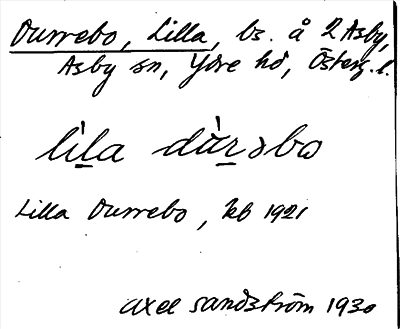 Durrebo, Lilla, bs. å 2 Asby,
Asby sn, Ydre hd, Österg. l.
lìl̠a dùr̠ɘbω
Lilla Durrebo, kb 1921
Axel Sandström 1930